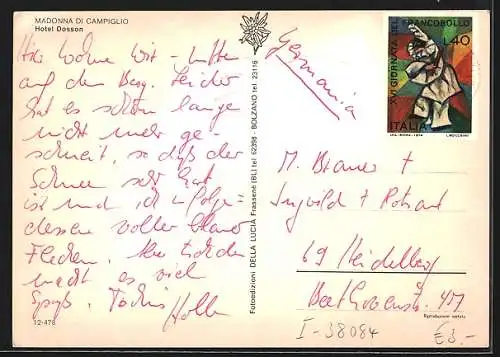 MADONNA DI CAMPIGLIO
Hotel Dosson
Hier wohnen wir - mitten
auf dem Berg. Leider
hat es schon lange
nicht mehr ge-
schneit, so daß der
Schnee sehr hart
ist und ich infolge-
dessen voller blauer
Flecken. Aber trotzdem
macht es viel
Spaß. Tschüs
12-478
Fotoedizioni DELLA LUCIA Frassenè (BL) tel 62398 - BOLZANO tel. 23116
Germania
XVI GIORNATA DEL FRANCOBOLLO
L.40
ITALIA
M. Brauer +
Ingrid +
69 Heidelberg
Beethovenstr. 47
Riproduzione vietata
I-38084
€3.-